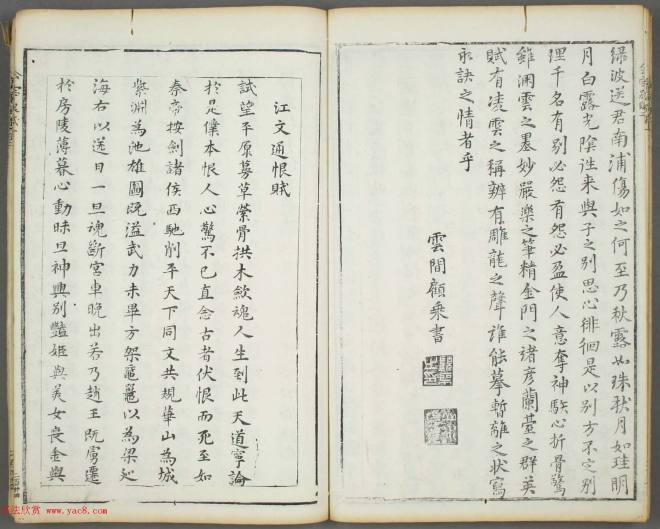 綠波送君南浦傷如之何至乃秋露如珠秋月如珪明
月白露光陰往来與子之別思心徘徊是以別方不定別
理千名有別必怨有怨必盈使人意奪神駭心折骨驚
雖淵雲之墨妙嚴樂之筆精金門之諸彦蘭臺之群英
賦有凌雲之稱辨有雕龍之聲誰能摹暫離之状寫
永訣之情者乎
雲間顧乘書
江文通恨賦
試望平原蔓草縈骨拱木歛魂人生到此天道寧論
於是僕本恨人心驚不已直念古者伏恨而死至如
秦帝按劍諸侯西馳削平天下同文共規華山為城
紫淵為池雄圖既溢武力未畢方架黿鼉以為梁廵
海右以送日一旦魂斷宮車晚出若乃趙王既虜遷
於房陵薄暮心動昧旦神興別艷姬與美女喪金輿
书法欣赏 www.yac8.com